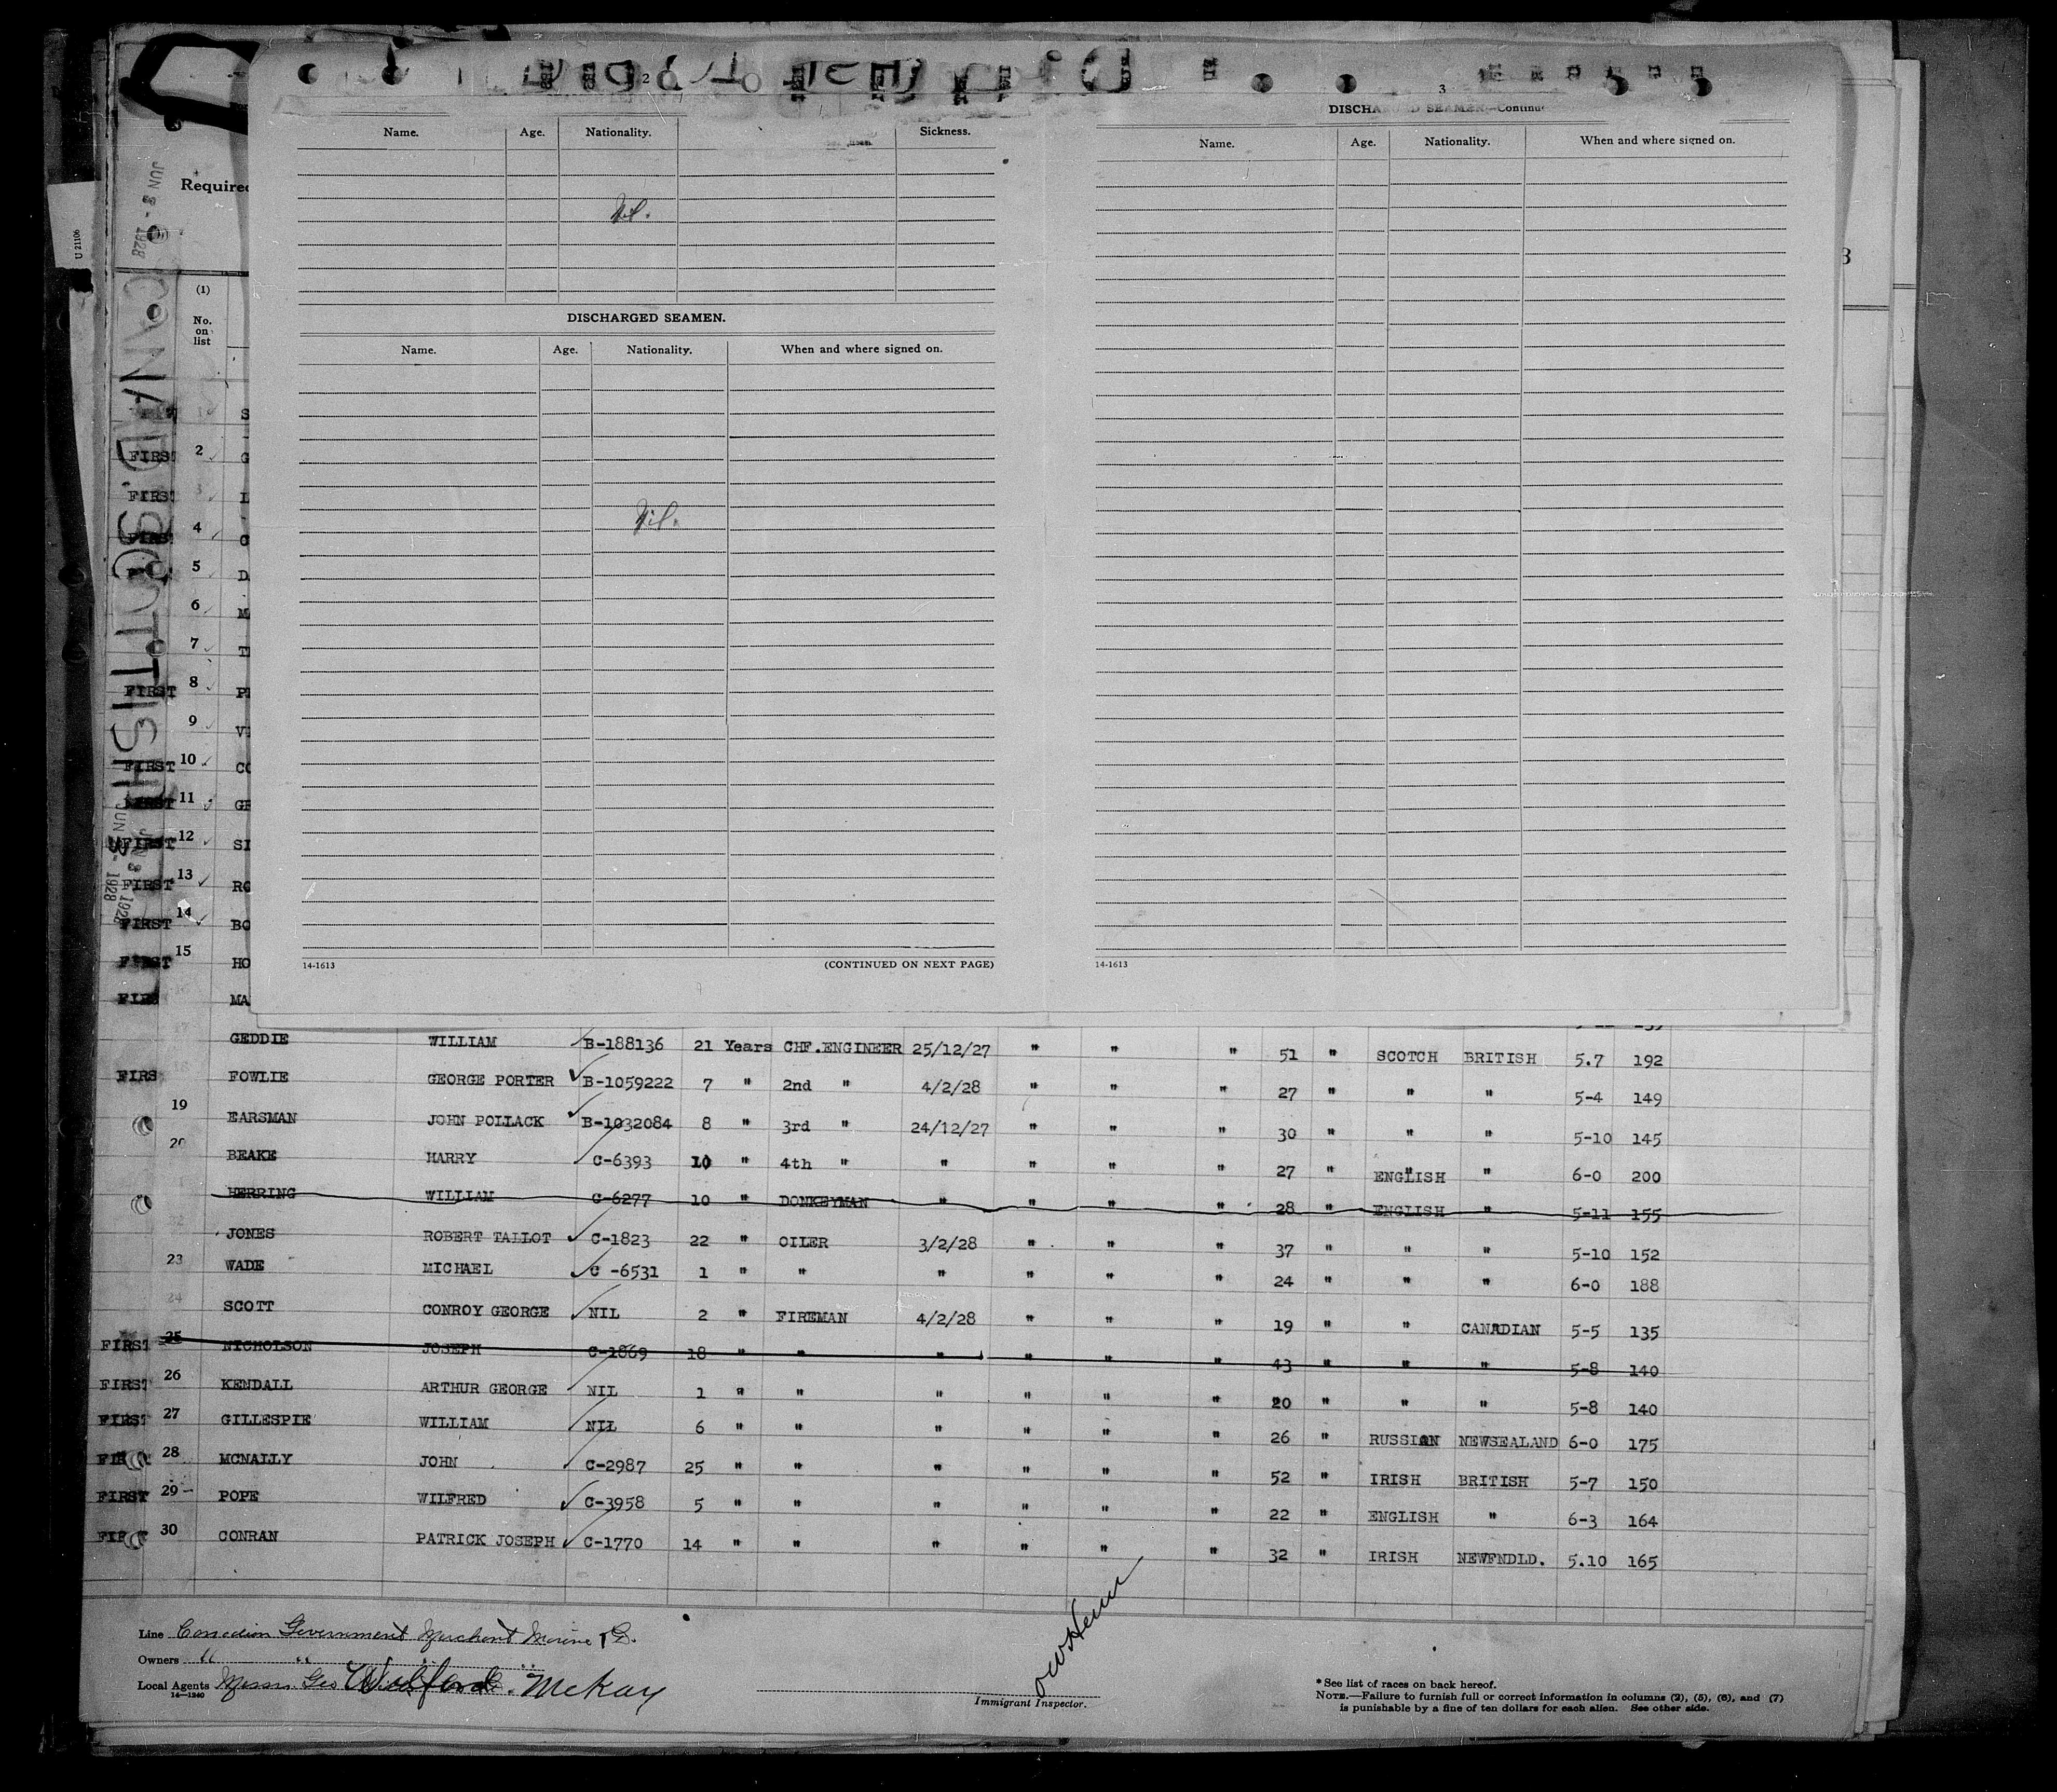 2
3
DISCHARGED SEAMEN—Continu
Name. Age. Nationality. Sickness.
Name. Age. Nationality. When and where signed on.
Nil.
DISCHARGED SEAMEN.
Name. Age. Nationality. When and where signed on.
Nil.
14-1613 (CONTINUED ON NEXT PAGE)
14-1613
U 21106
JUN 8 - 1928
Required
(1)
No. on list
CANAD. SCOTTISH
JUN 8 - 1928
JUN 8 1928
S
FIRST 2 G
FIRST 3 L
FIRST 4 C
5 D
6 M
7 T
FIRST 8 P
9 V
FIRST 10 CO
FIRST 11 GR
FIRST 12 SI
FIRST 13 RO
FIRST 14 BO
FIRST 15 HO
FIRS MA
17 GEDDIE WILLIAM B-188136 21 Years CHF.ENGINEER 25/12/27 " " " 51 " SCOTCH BRITISH 5.7 192
FIRS 18 FOWLIE GEORGE PORTER B-1059222 7 " 2nd " 4/2/28 " " " 27 " " " 5-4 149
19 EARSMAN JOHN POLLACK B-1032084 8 " 3rd " 24/12/27 " " " 30 " " " 5-10 145
20 BEAKE HARRY C-6393 10 " 4th " " " " " 27 " ENGLISH " 6-0 200
HERRING WILLIAM C-6277 10 " DONKEYMAN " " " " 28 " ENGLISH " 5-11 155
22 JONES ROBERT TALLOT C-1823 22 " OILER 3/2/28 " " " 37 " " " 5-10 152
23 WADE MICHAEL C -6531 1 " " " " " " 24 " " " 6-0 188
24 SCOTT CONROY GEORGE NIL 2 " FIREMAN 4/2/28 " " " 19 " " CANADIAN 5-5 135
FIRST 25 NICHOLSON JOSEPH C-1869 18 " " " " " " 43 " " " 5-8 140
FIRST 26 KENDALL ARTHUR GEORGE NIL 1 " " " " " " 20 " " " 5-8 140
FIRST 27 GILLESPIE WILLIAM NIL 6 " " " " " " 26 " RUSSIAN NEWSEALAND 6-0 175
28 MCNALLY JOHN C-2987 25 " " " " " " 52 " IRISH BRITISH 5-7 150
FIRST 29 POPE WILFRED C-3958 5 " " " " " " 22 " ENGLISH " 6-3 164
30 CONRAN PATRICK JOSEPH C-1770 14 " " " " " " 32 " IRISH NEWFNDLD. 5.10 165
Line Canadian Government Merchant Marine
Owners " "
Local Agents Messrs. Geo McKay
14—1240
Immigrant Inspector.
* See list of races on back hereof.
NOTE.—Failure to furnish full or correct information in columns (2), (5), (6), and (7)
is punishable by a fine of ten dollars for each alien. See other side.